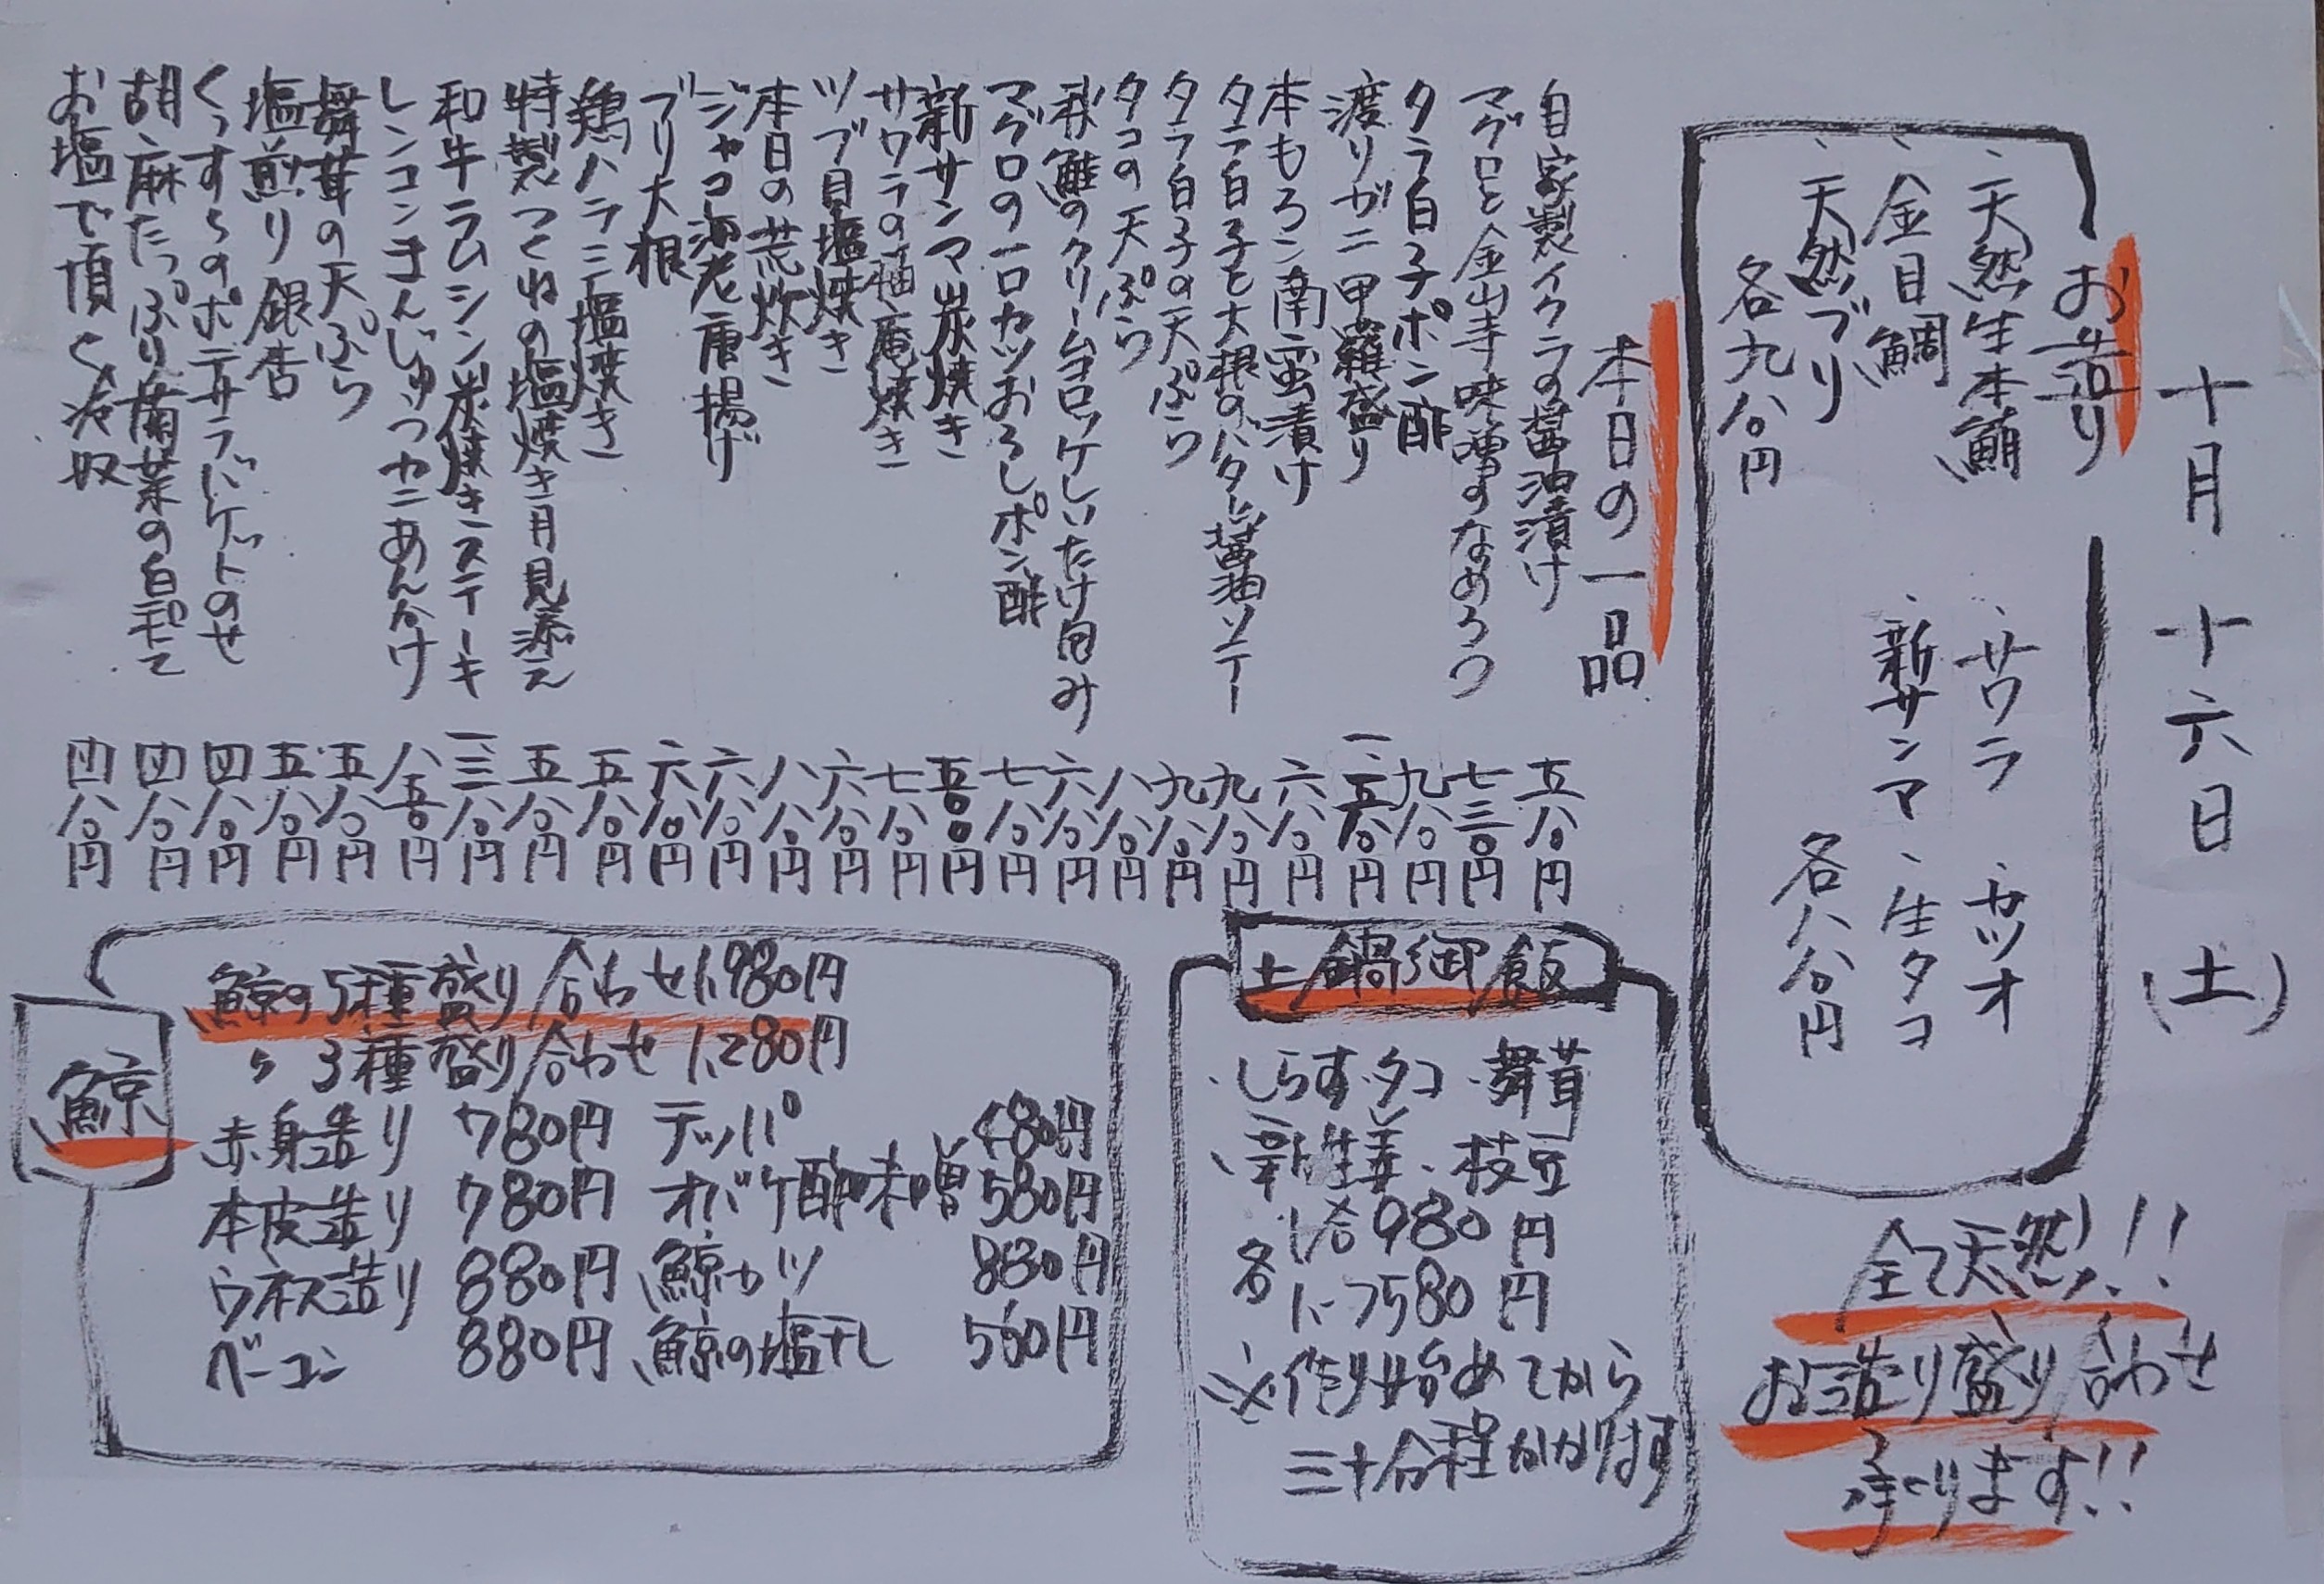 十月十六日(土)
お造り
、天然生本鮪 、サワラ 、カツオ
、金目鯛 、新サンマ 、生タコ
、天然ブリ
各九八〇円
各八八〇円
全て天然!!
お造り盛り合わせ
承ります!!
本日の一品
自家製イクラの醤油漬け 五八〇円
マグロと金山寺味噌のなめろう 七三〇円
タラ白子ポン酢 九八〇円
渡りガニ甲羅盛り 一、五八〇円
本もろこ南蛮漬け 六八〇円
タラ白子と大根のバター醤油ソテー 九八〇円
タラ白子の天ぷら 九八〇円
タコの天ぷら 八八〇円
秋鮭のクリームコロッケしいたけ包み 六八〇円
マグロの一口カツおろしポン酢 七八〇円
新サンマ炭焼き 五〇〇円
サワラの柚庵焼き 七八〇円
ツブ貝塩焼き 六八〇円
本日の荒炊き 八八〇円
ジャコ海老唐揚げ 六八〇円
ブリ大根 六八〇円
鶏ハラミ塩焼き 五八〇円
特製つくねの塩焼き月見添え 五八〇円
和牛ラムシン炭焼きステーキ 一、三八〇円
レンコンまんじゅうカニあんかけ 八五〇円
舞茸の天ぷら 五八〇円
塩煎り銀杏 五八〇円
くっすらのポテサラバケットのせ 四八〇円
胡麻たっぷり菊菜の白和え 四八〇円
お塩で頂く冷奴 四八〇円
土鍋御飯
・しらす・タコ・舞茸
・新生姜・枝豆
各 1合 980円
1.5 1,580円
※作り始めてから
三十分程かかります
鯨
鯨の5種盛り合わせ 1,980円
〃 3種盛り合わせ 1,280円
赤身造り 780円 テッパ 480円
本皮造り 780円 オバケ酢味噌 580円
ウネス造り 880円 鯨カツ 880円
ベーコン 880円 鯨の塩干し 550円